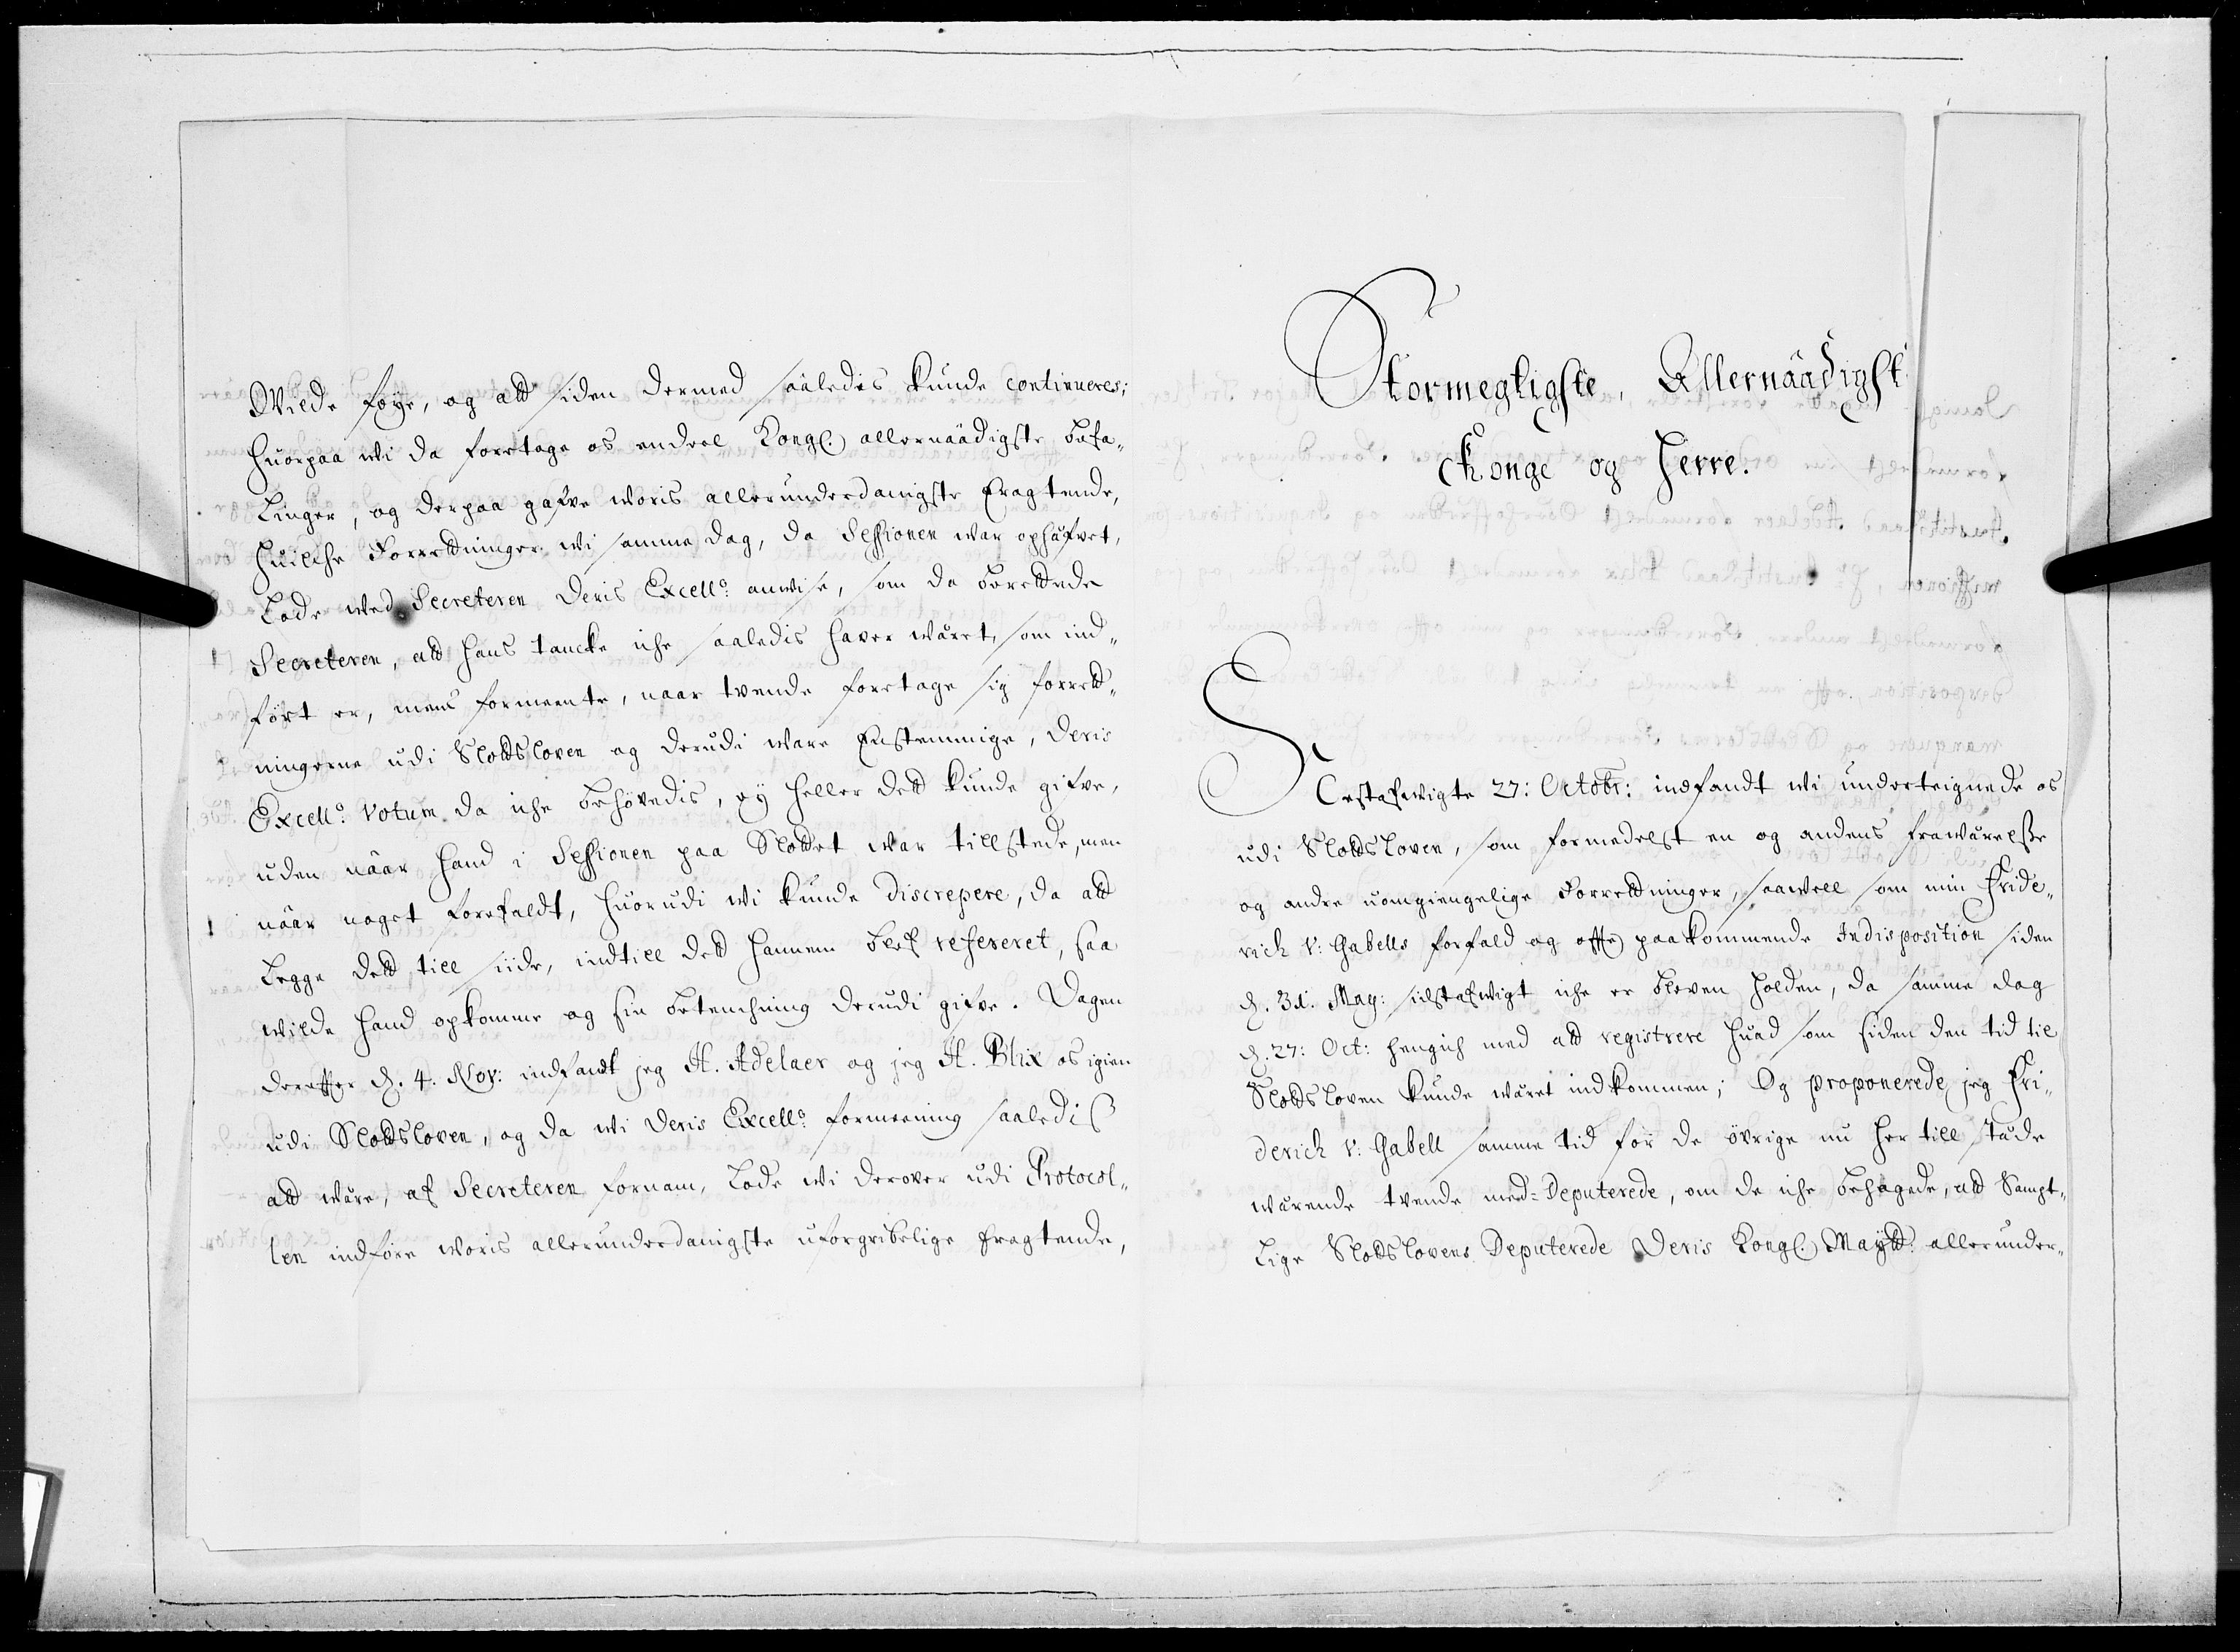 Wilde føye, og att siden dermed saaledis kunde continueres;
Huorpaa wi da foretage os endeel Kongl. allernaadigste befa-
linger, og derpaa gafve woris allerunderdanigste Eragtende,
Huilche Forretninger wi samme dag, da Sessionen war ophäfvet,
Lode wed Secreteren Deris Excell: anwise, som da berettede
Secreteren, att hans tancke iche saaledis hafver wäret, som ind-
ført er, mens formeente, naar tvende foretage sig forret-
ningerne udi Slotsloven og derudi ware Enstemmige, Deris
Excell: Votum da iche behøvedis, ey heller dett kunde gifve,
uden näar hand i Sessionen paa Slottet war tillstede, men
näar noget forefaldt, huorudi wi kunde discrepere, da att
Legge dett till siide, indtill dett hannem blef refereret, saa
wilde hand opkomme og sin betenchning derudi gifve. Dagen
derefter d. 4. Nov: indfandt jeg H. Adelaer og jeg H. Blix os igien
udi Slotsloven, og da wi Deris Excell: formeening saaledis
att wäre, af Secreteren fornam, Lode wi derover udi Protocol-
len indføre woris allerunderdanigste uforgribelige Eragtende,
Stormegtigste, Allernäädigst
Konge og Herre.
Sistafwigte 27: Octobr: indfandt wi underteignede os
udi Slotsloven, som formedelst en og andens frawärelse
og andre uomgiengelige Forretninger, saawell som min Fride-
rich V: Gabells forfald og ofte paakommende Indisposition siden
d. 31. May: sidstafwigt iche er bleven holden, da samme dag
d. 27: Oct: hengich med att registrere huad som siden den tid til
Slotsloven kunde wäret indkommen; Og proponerede jeg Fri-
derich V: Gabell samme tid for de øvrige nu her till städe
wärende tvende med-Deputerede, om de iche behagede, att Sampt-
lige Slotslovens Deputerede Deris Kongl. Maytt: allerunder-